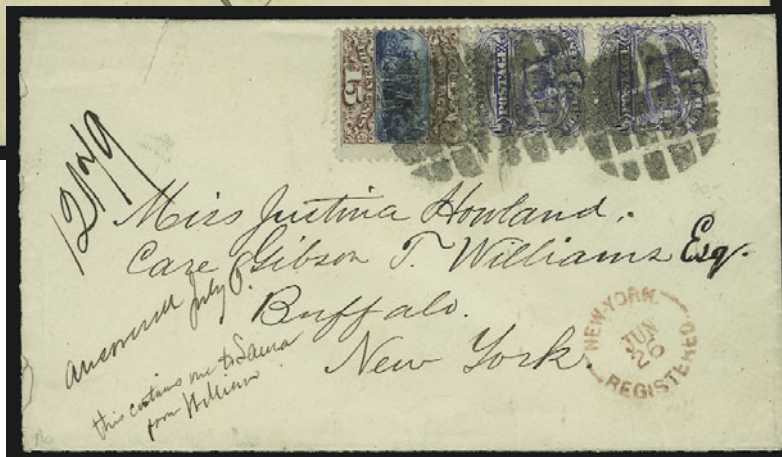 15
POSTAGE
POSTAGE
12179
Miss Justina Howland.
Care Gibson T. Williams Esq.
Buffalo.
New York.
answered July
this contains one to Laura
from William
NEW-YORK
JUN
26
REGISTERED